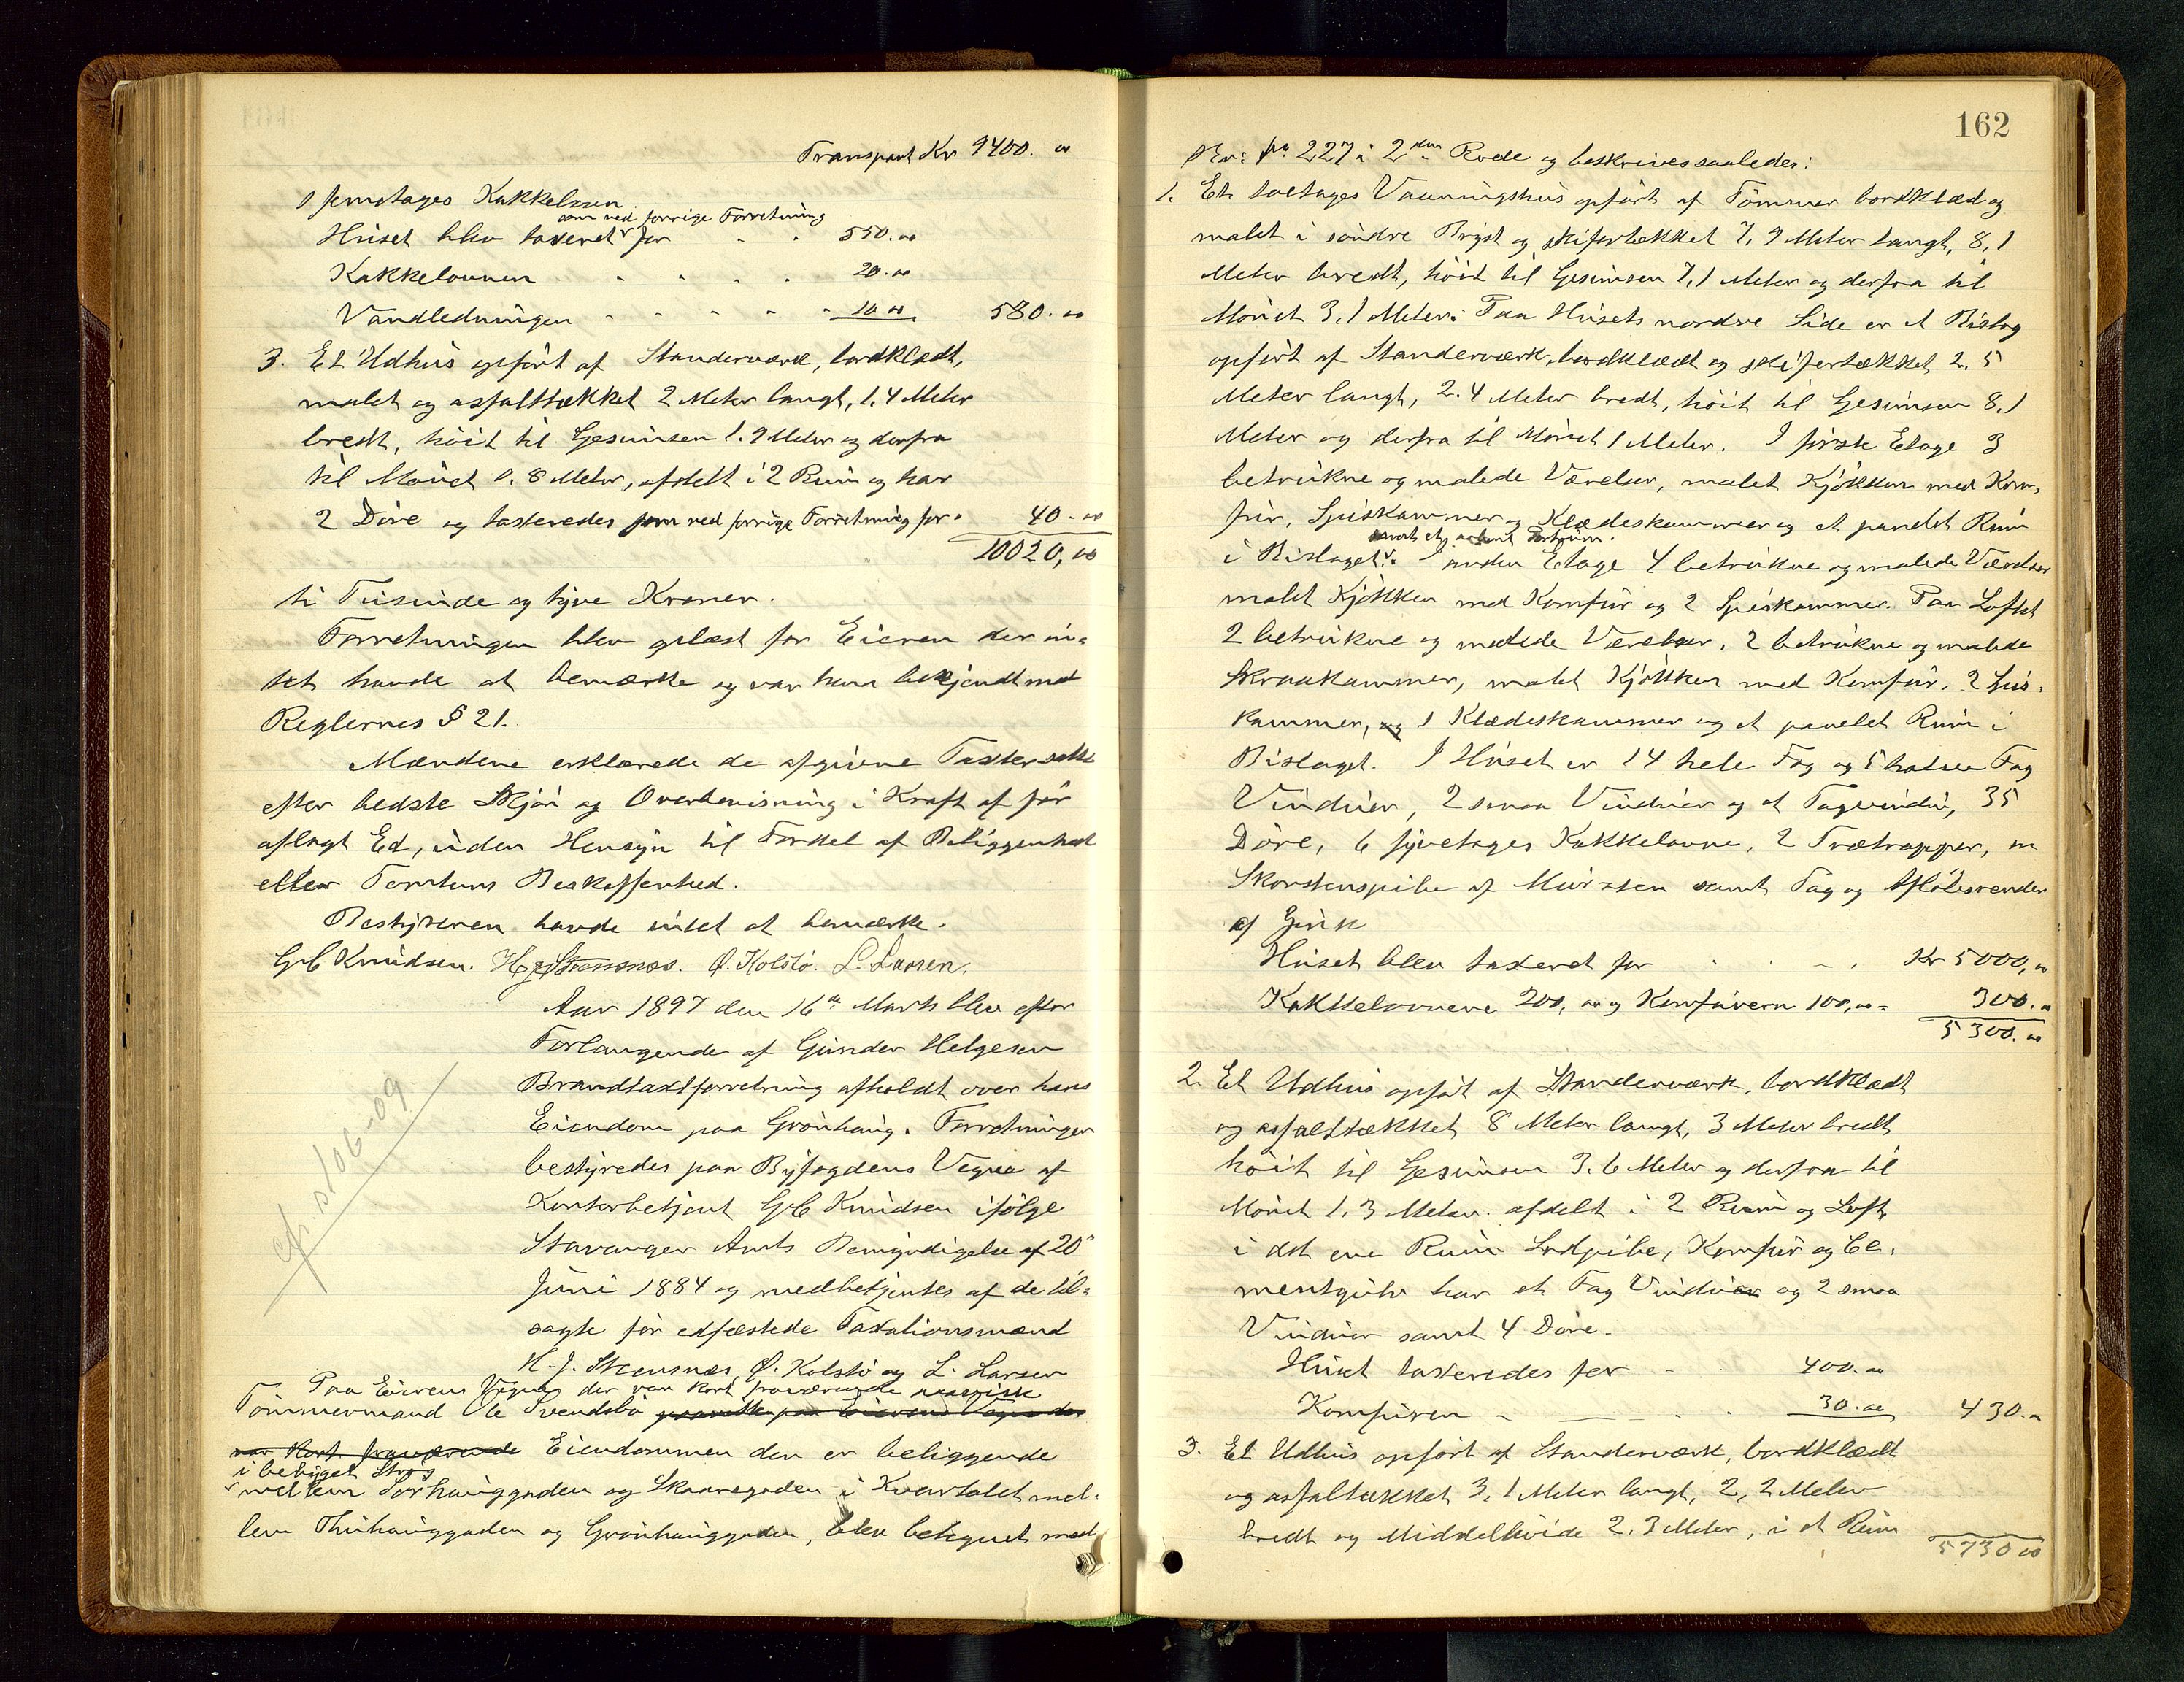 Transport Kr 9400. 00
1 femetages Kakkelovn.
som ved forrige Forretning
Huset blev taxeret for 550.00
Kakkelovnen 20.00
Vandledningen 10 00 580.00
3. Et Udhus opført af Standerværk, bordklædt,
malet og asfalttækket 2 Meter langt, 1,4 Meter
bredt, høit til Gesimsen 1.9 Meter og derfra
til Mønet 0.8 Meter, afdelt i 2 Rum og har
2 Døre og taxeredes som ved forrige Forretning for. 40-00
10020,00
ti Tusinde og tyve Kroner.
Forretningen blev oplæst for Eieren der in-
tet havde at bemærke og var han bekjendt med
Reglernes § 21.
Mændene erklærede de afgivne Taxter satte
efter bedste Skjøn og Overbevisning i Kraft af før
aflagt Ed, uden Hensyn til Fordel af Beliggenhed
eller Tomtens Beskaffenhed.
Bestyreren havde intet at bemærke.
G C Knudsen. H J Stensnæs. O. Kolstø. L. Larsen.
Aar 1897 den 16de Marts blev efter
Forlangende af Gunder Helgesen
Brandtaxtforretning afholdt over hans
Eiendom paa Grønhaug. Forretningen
bestyredes paa Byfogdens Vegne af
Kontorbetjent G C Knudsen ifølge
Stavanger Amts Bemyndigelse af 20de
Juni 1884 og medbetjentes af de til-
sagte før edfæstede Taxationsmænd
H. J. Stensnæs, O. Kolstø og L. Larsen
cfr. s 106-09
Paa Eierens Vegne der var bort fraværende
Tømmermand Ole Svendsbø paa Eierens Vegne der
var bort fraværende Eiendommen der er beliggende
i bebygget Strøg
mellem Sørhauggaden og Skaaregaden i Kvartalet mel-
lem Thuhauggaden og Grønhauggaden, blev betegnet med
162
No 227 i 2den Rode og beskrives saaledes:
1. Et toetages Vaaningshus opført af Tømmer bordklæd og
malet i søndre Bryst og skifertækket 7,9 Meter langt, 8,1
Meter bredt, høit til Gesimsen 7,1 Meter og derfra til
Mønet 3,1 Meter. Paa Husets nordre Side er et Bislag
opført af Standerværk, bordklædt og skifertækket 2.5
Meter langt, 2.4 Meter bredt, høit til Gesimsen 8,1
Meter og derfra til Mønet 1 Meter. I første Etage 3
betrukne og malede Værelser, malet Kjøkken med Kom-
fur, Spiskammer og Klædeskammer og et panelet Rum
samt et
i Bislaget. I anden Etage 4 betrukne og malede Værelser
malet Kjøkken med Komfur og 2 Spiskammer. Paa Loftet
2 betrukne og malede Værelser, 2 betrukne og malede
Skraakammer, malet Kjøkken med Komfur, 2 Spis-
kammer, og 1 Klædeskammer og et panelet Rum i
Bislaget. I Huset er 14 hele Fag og 5 halve Fag
Vinduer, 2 smaa Vinduer og et Tagvindu, 35
Døre, 6 fyretages Kakkelovne, 2 Trætrapper, en
Skorstenspibe af Mursten samt Tag og Afløbsrender
af Zink
Huset blev taxeret for Kr 5000,00
Kakkelovnene 200,00 og Komfurerne 100,00 = 300.00
5300.00
2. Et Udhus opført af Standerværk, bordklædt
og asfalttækket 8 Meter langt, 3 Meter bredt
høit til Gesimsen 3.6 Meter og derfra til
Mønet 1.3 Meter. afdelt i 2 Rum og Loft
i det ene Rum Lodpibe, Komfur og Ce-
mentgulv har et Fag Vinduer og 2 smaa
Vinduer samt 4 Døre.
Huset taxeredes for 400.00
Komfuren 30.00 430.00
3. Et Udhus opført af Standerværk, bordklædt
og asfaltækket 3,1 Meter langt, 2,2 Meter
bredt og Middelhøide 2.3 Meter, i et Rum
5730 00